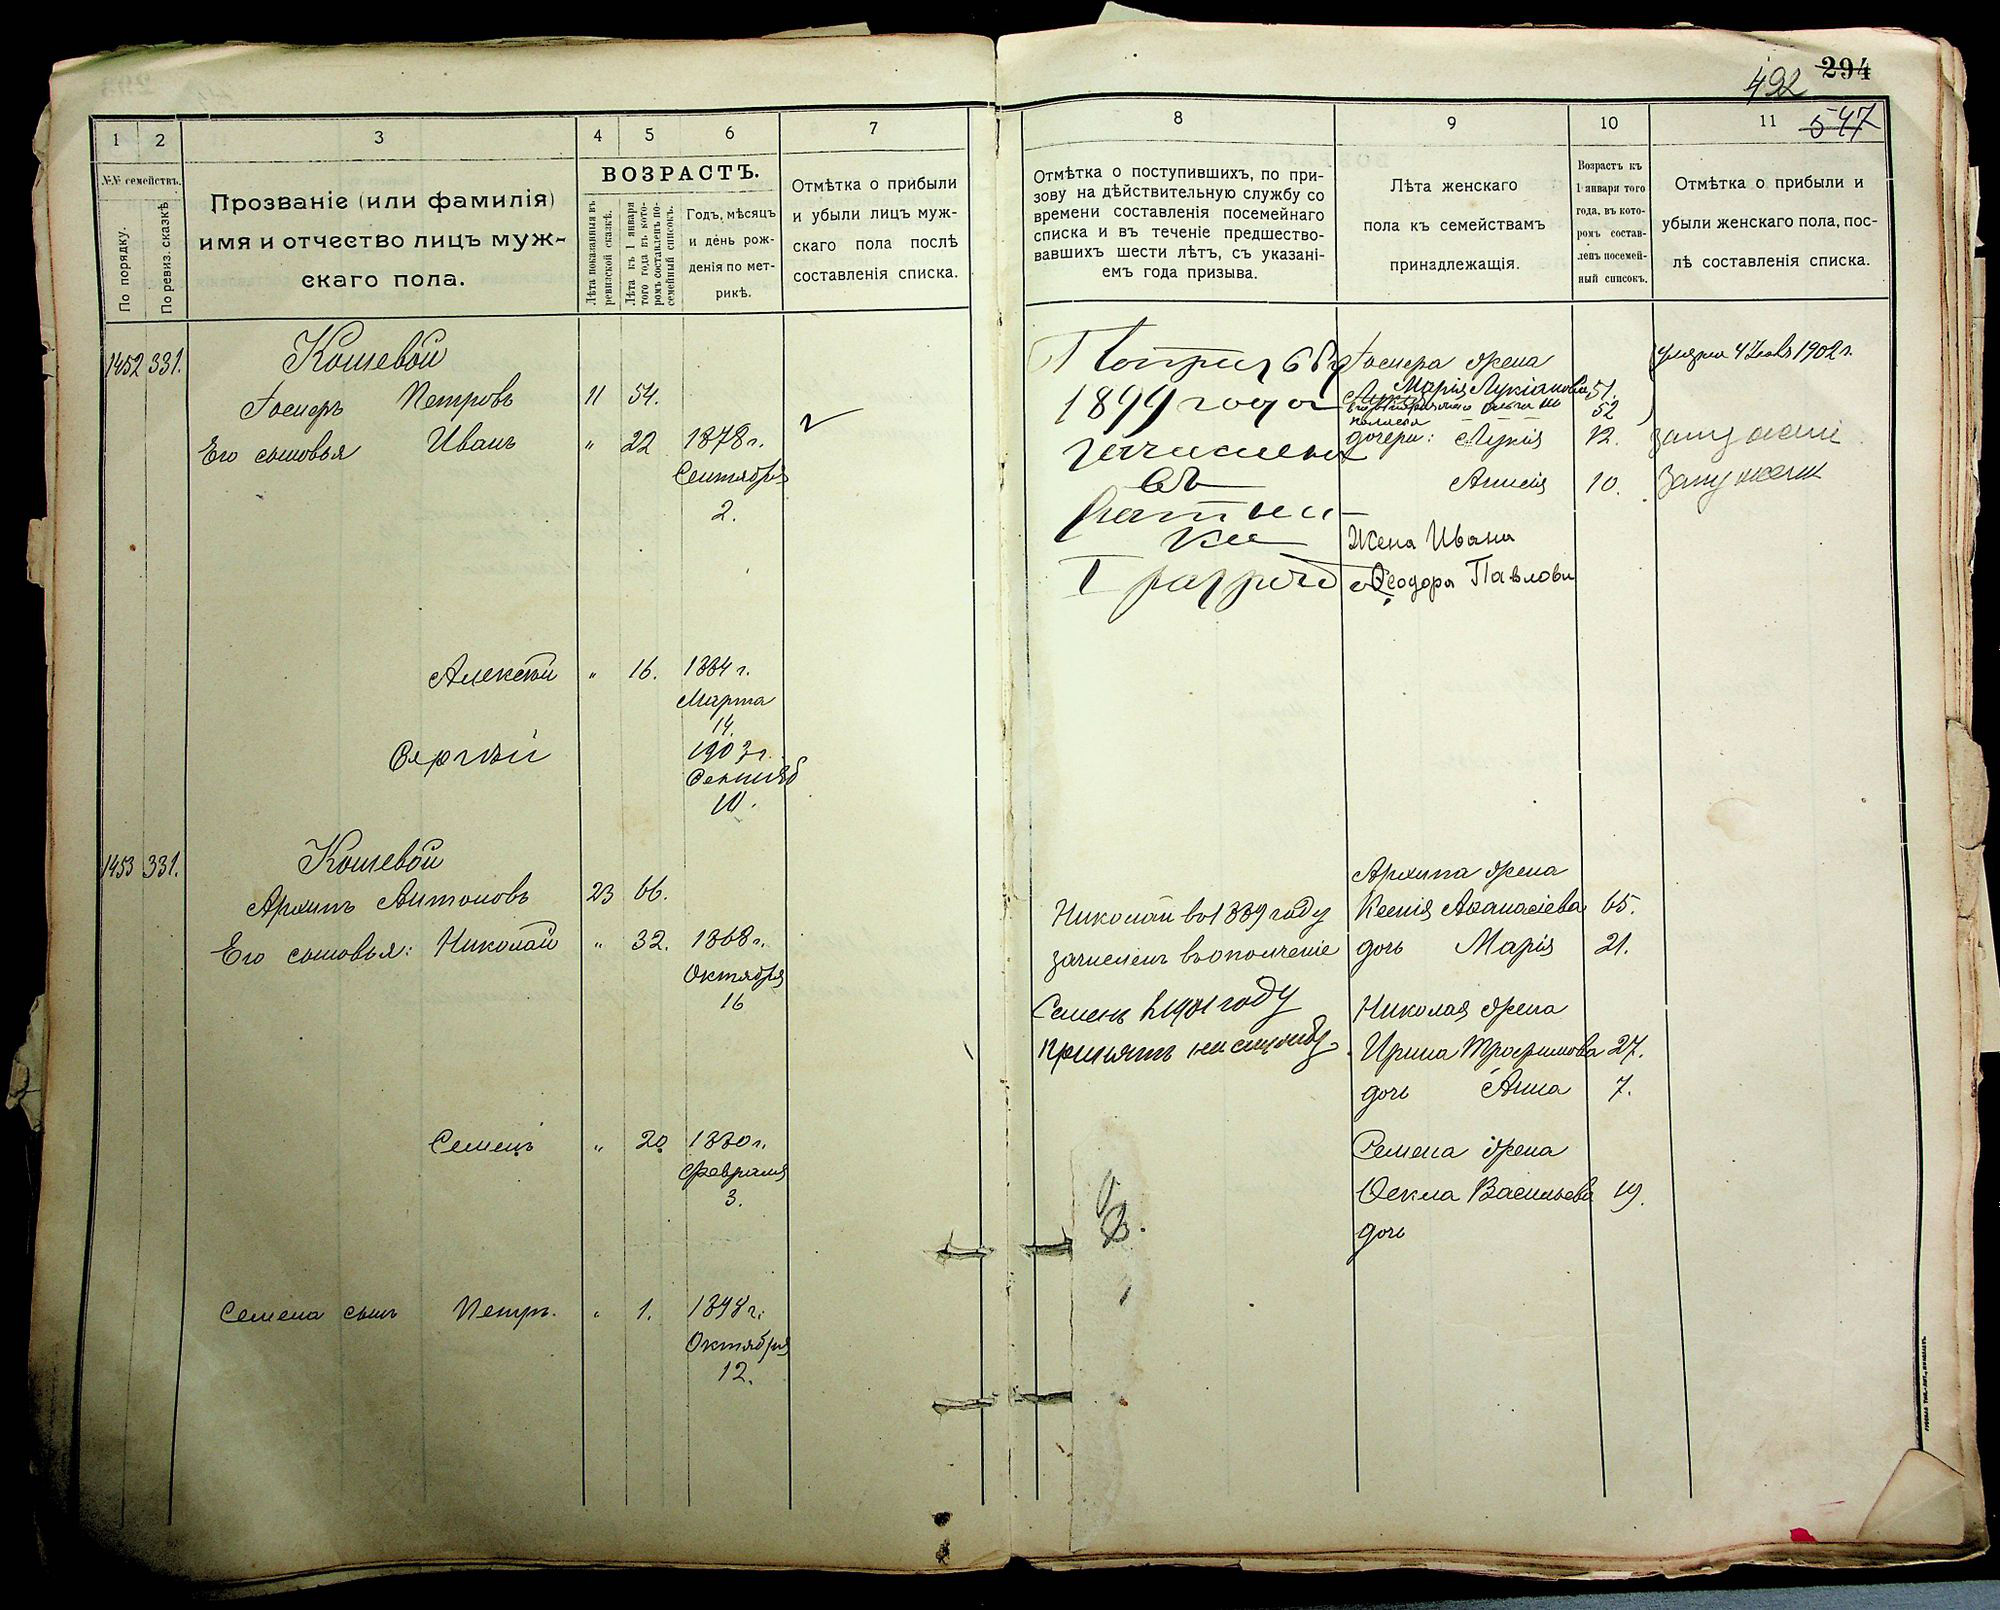 492 294
547
1 2 3 4 5 6 7
№№ семействъ.
По порядку.
По ревиз. сказкѣ
Прозваніе (или фамилія)
имя и отчество лицъ муж-
скаго пола.
ВОЗРАСТЪ.
Лѣта показанныя въ
ревизской сказкѣ.
Лѣта къ 1 января
того года въ кото-
ромъ составленъ по-
семейный списокъ.
Годъ, мѣсяцъ
и день рож-
денія по мет-
рикѣ.
Отмѣтка о прибыли
и убыли лицъ муж-
скаго пола послѣ
составленія списка.
1452 331. Кошевой
Петровъ 11 54.
Его сыновья Иванъ " 22 1878 г.
Сентября
2.
Алексѣй " 16. 1884 г.
Марта
14.
Сергѣй 1903 г.
10.
1453 331. Кошевой
Архипъ Антоновъ 23 66.
Его сыновья: Николай " 32. 1868 г.
Октября
16
Семенъ " 20 1880 г.
Февраля
3.
Семена сынъ Петръ. " 1. 1898 г.
Октября
12.
8 9 10 11
Отмѣтка о поступившихъ, по при-
зову на дѣйствительную службу со
времени составленія посемейнаго
списка и въ теченіе предшество-
вавшихъ шести лѣтъ, съ указані-
емъ года призыва.
Лѣта женскаго
пола къ семействамъ
принадлежащія.
Возрастъ къ
1 января того
года, въ кото-
ромъ состав-
ленъ посемей-
ный списокъ.
Отмѣтка о прибыли и
убыли женскаго пола, пос-
лѣ составленія списка.
жена 1902 г.
1899 года Марія Лукіанова 51.
52
дочери: Лукія 12. замужемъ
въ 10. замужемъ
ратни-
ки Жена Ивана
I Ѳеодора Павлова
Архипа жена
Николай въ 1889 году Ксенія Аѳанасіева 65.
зачисленъ въ ополченіе дочь Марія 21.
Семенъ в 1901 году Николая жена
принятъ на службу. Ирина Трофимова 27.
дочь Анна 7.
Семена жена
Ѳекла Васильева 19.
дочь